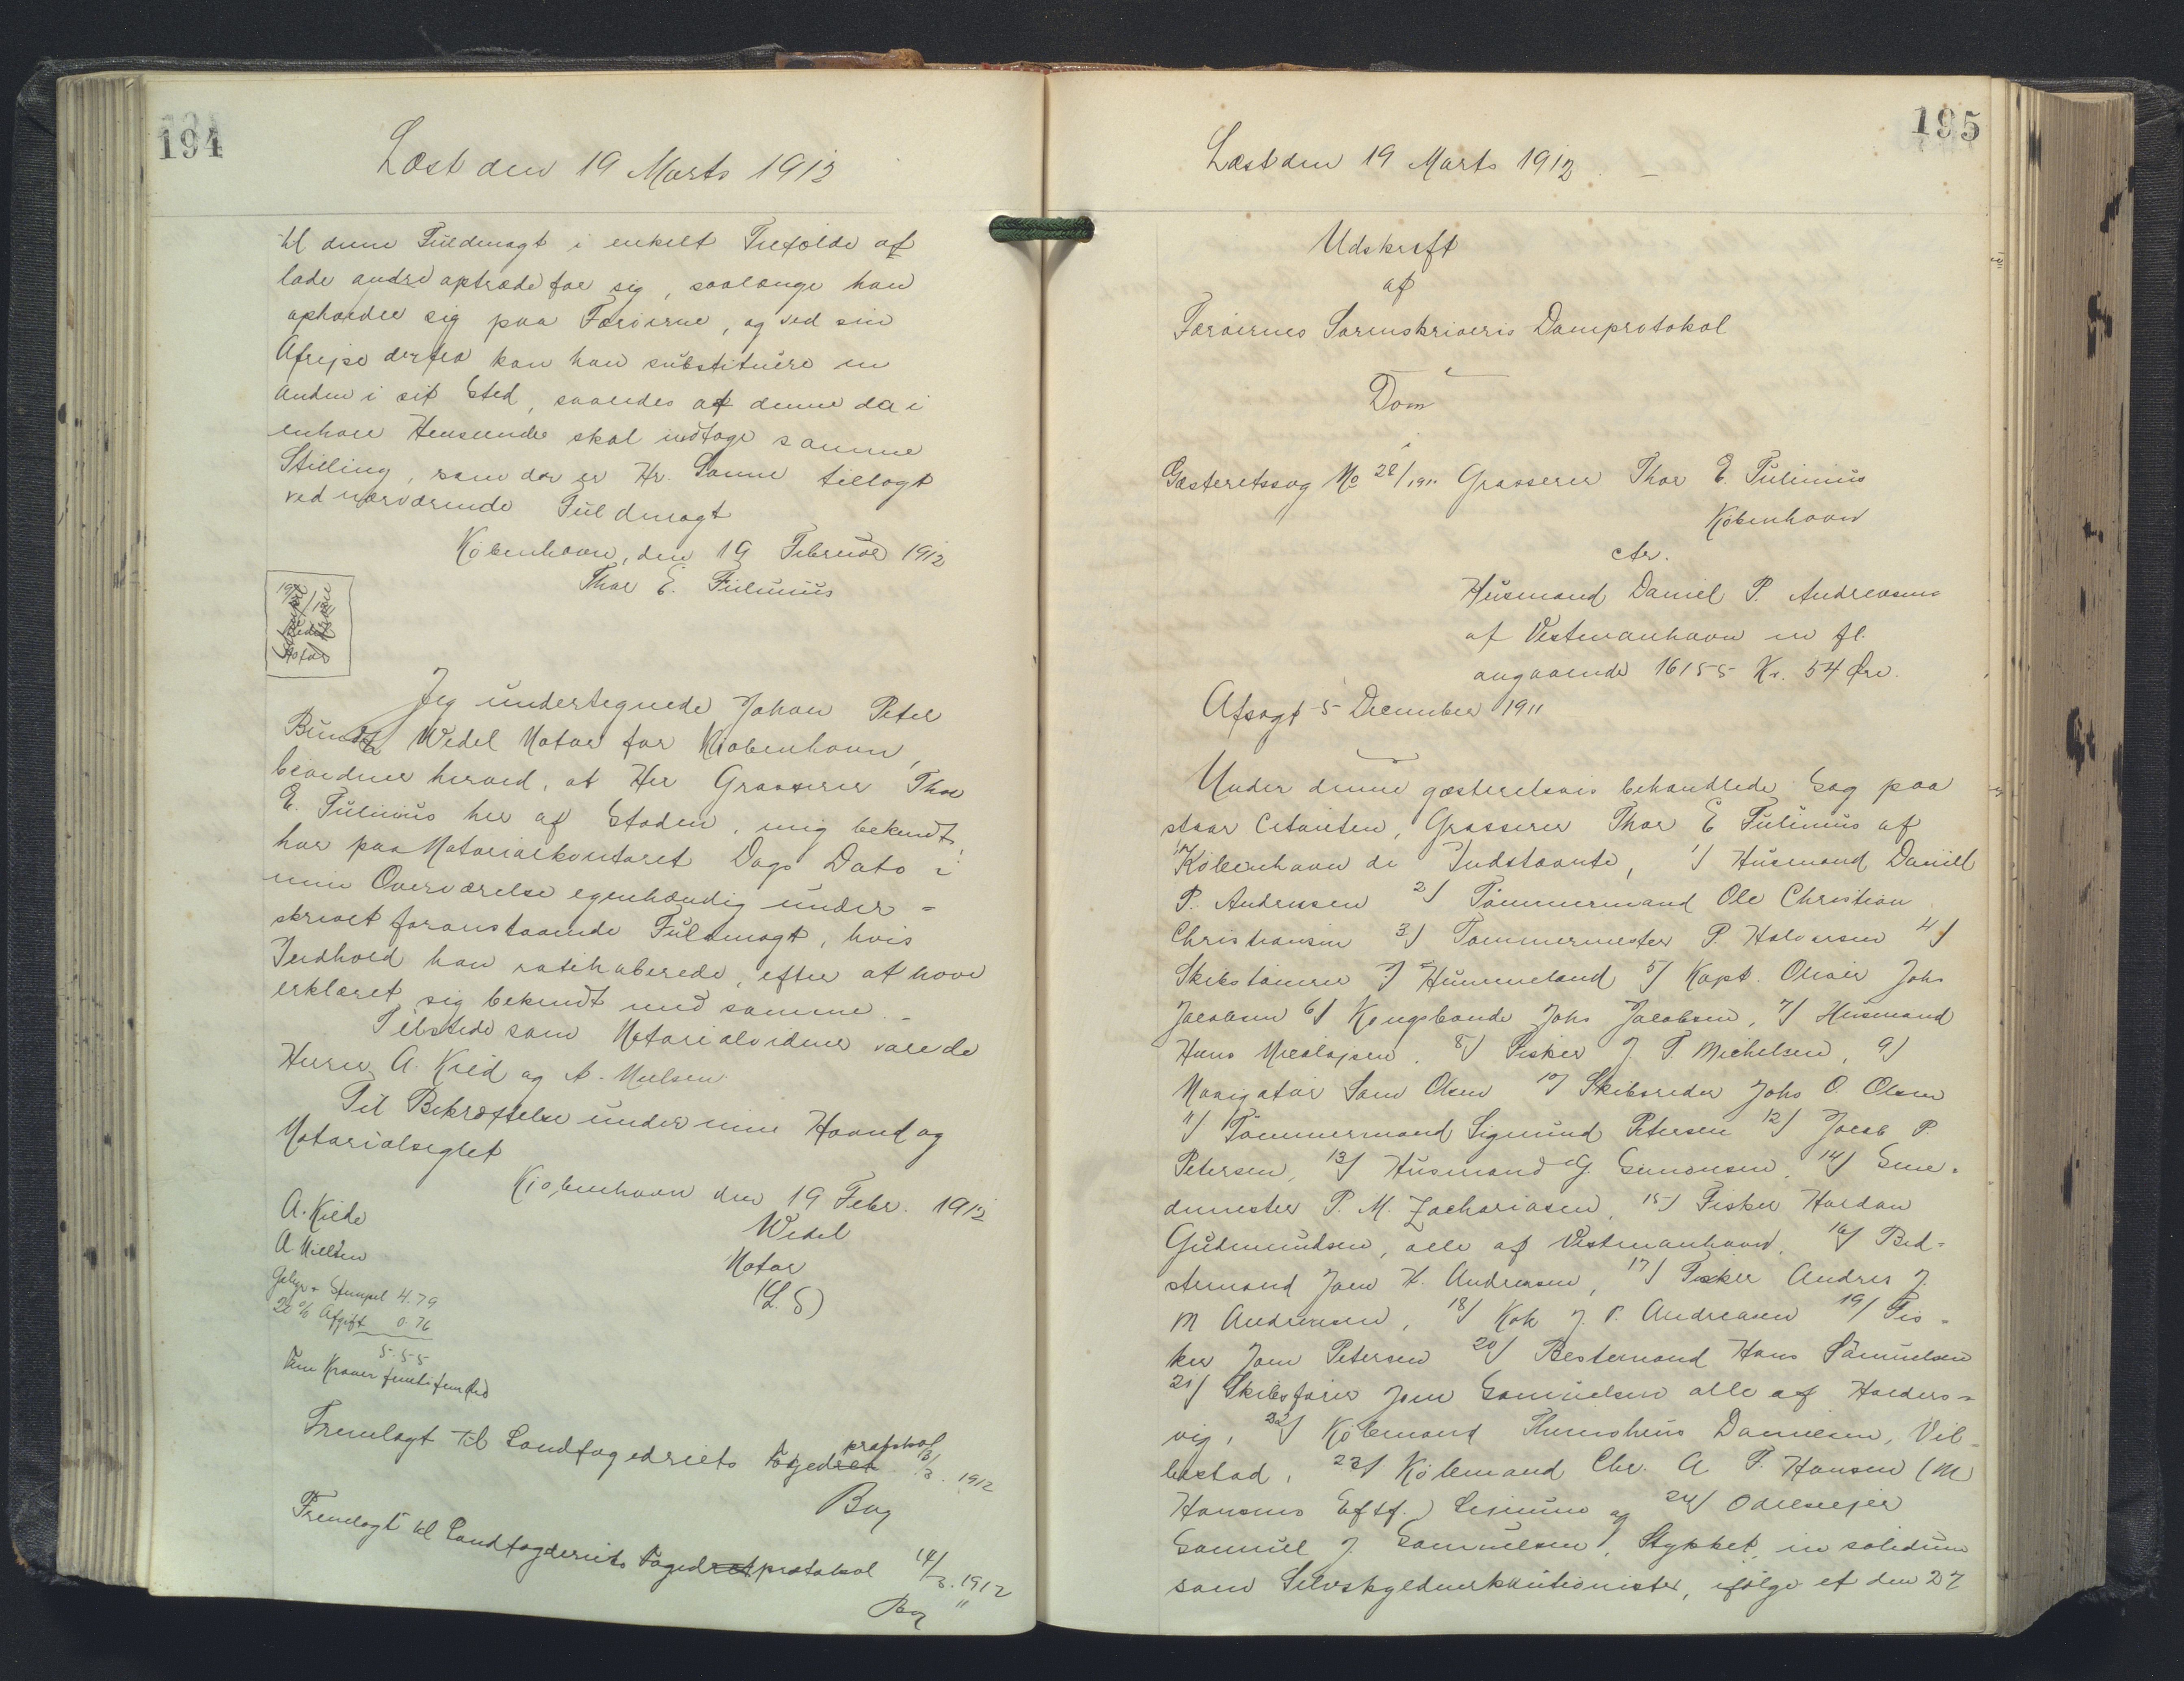 194
Læst den 19 Marts 1912
til denne Fuldmagt i enkelt Tilfælde at
lade andre optræde for sig, saalænge han
opholder sig paa Færøerne, og ved sin
Afrejse derfra kan han substituere en
anden i sit Sted, saaledes at denne da i
enhver Henseende skal indtage samme
Stilling, som der er Hr. Sanne tillagt
ved nærværende Fuldmagt
København, den 19 Februar 1912
Thor E. Tulinius
Jeg undertegnede Johan Peter
Bundtz Wedel Notar for Kjøbenhavn,
bevidner herved, at Her Grosserer Thor
E. Tulinius her af Staden, mig bekendt,
har paa Notarialkontoret Dags Dato i
min Overværelse egenhændig under=
skrevet foranstaaende Fuldmagt, hvis
Indhold han ratihaberede, efter at have
erklæret sig bekendt med samme. -
Tilstede som Notarialvidner vare de
Herrer A. Kild og A. Nielsen
Til Bekræftelse under min Haand og
Notarialseglet
Kjøbenhavn den 19 Febr. 1912
A. Kilde
Wedel
A. Nielsen
Notar
(L. S)
Gebyr + Stempel 4.79
20 % Afgift 0.76
5.55
Fem Kroner femtifem Øre
Fremlagt til Landfogedriets Fogedret protokol 13/3. 1912
Bog
Fremlagt til Landfogderiets Fogedret protokol 14/3. 1912
Bog "
195
Læst den 19 Marts 1912. -
Udskrift
af
Færøernes Sorenskriveris Domprotokol
Dom
i
Gæsteretssag No 28/1911 Grosserer Thor E. Tulinius
København
ctr.
Husmand Daniel P. Andreasen
af Vestmanhavn m fl.
angaaende 16155 Kr. 54 Øre.
Afsagt 5 December 1911
Under denne gæsteretsvis behandlede Sag paa
staar Citanten, Grosserer Thor E Tulinius af
København de Indstævnte, 1/ Husmand Daniel
P. Andreasen 2/ Tømmermand Ole Christian
Christiansen 3/ Tømmermester P. Halvorsen 4/
Skibstømrer J Hummeland 5/ Kapt. Olivir Johs
Jacobsen 6/ Kongsbonde Johs Jacobsen, 7/ Husmand
Hans Nicolajsen. 8/ Fisker J T. Michelsen, 9/
Navigatør Sam Olsen 10/ Skibsreder Johs O. Olsen
11/ Tømmermand Sigmund Petersen 12/ Jacob P.
Petersen, 13/ Husmand G. Simonsen, 14/ Sme=
demester P. M. Zachariasen, 15/ Fisker Hardan
Gudmundsen, alle af Vestmanhavn, 16/ Bed=
stemand Joen H. Andreasen, 17/ Fisker Andres J.
M Andreasen, 18/ Kok J. P. Andreasen 19/ Fis=
ker Joen Petersen 20/ Bestemand Hans Samuelsen
21/ Skibsfører Joen Samuelsen alle af Halders=
vig, 22/ Købmand Thimotheus Danielsen, Vil=
bestad, 23/ Købmand Chr. A P. Hansen (M
Hansens Eftf.) Lejnum og 24/ Odelsejer
Samuel J Samuelsen, Stykket in solidum
som Selvskyldnerkautionister, ifølge et den 27